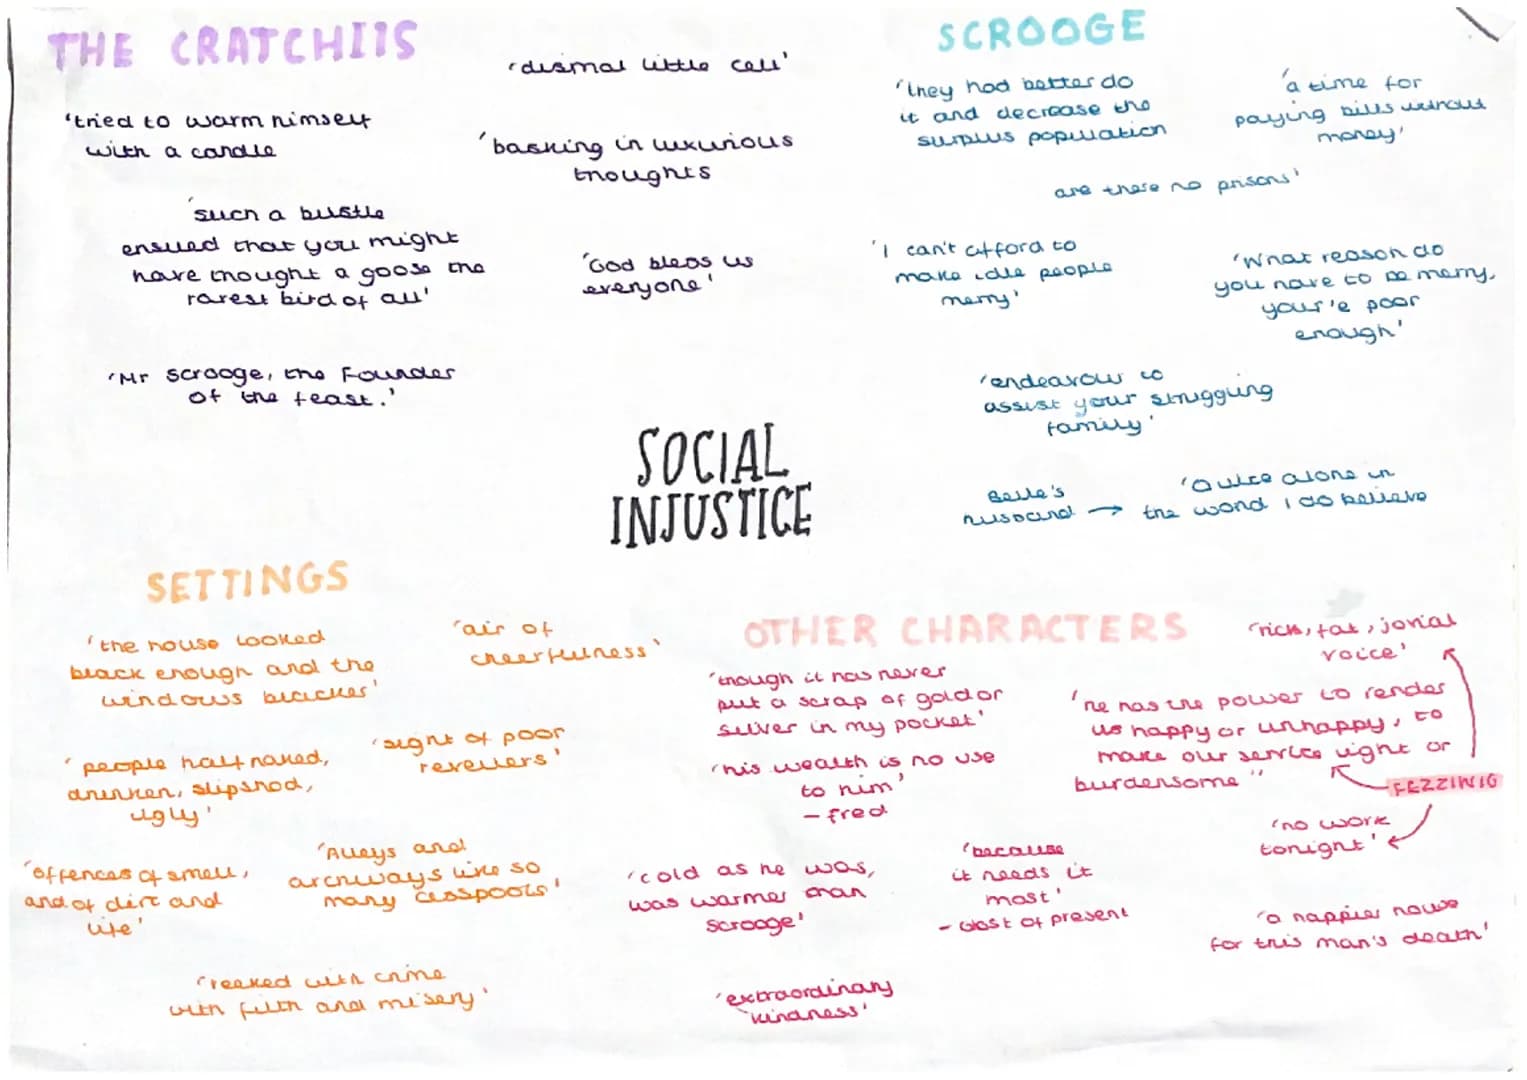 THE CRATCHITS
'dismal little cell'
'tried to warm himself
with a candle
'basking in luxurious
thoughts
'such a bustle
ensued that you might
have thought a goose the
rarest bird of all'
'God bless us
everyone'
'Mr Scrooge, the Founder
of the feast.'
SCROOGE
'they had better do
it and decrease the
surplus population
'a time for
paying bills without
money'
are there no prisons'
'I can't afford to
make idle people
merry'
'What reason do
you have to be merry,
your'e poor
enough'
'endeavour to
assist your struggling
family'
Belle's
husband →
'Quite alone in
the world I do believe
SOCIAL
INJUSTICE
SETTINGS
'the house looked
black enough and the
windows blacker'
'air of
cheerfulness'
'people half naked,
drunken, slipshod,
ugly'
'sight of poor
revellers'
'offences of smell,
and of dirt and
life'
'Alleys and
archways like so
many cesspools'
'reeked with crime
with filth and misery'
OTHER CHARACTERS
'though it has never
put a scrap of gold or
silver in my pocket'
'his wealth is no use
to him'
- fred
'rich, fat, jovial
voice'
'he has the power to render
us happy or unhappy, to
make our service light or
burdensome"
FEZZIWIG
'no work
tonight'
'cold as he was,
was warmer than
Scrooge'
'because
it needs it
most'
- Gost of present
'a happier house
for this man's death'
'extraordinary
kindness'